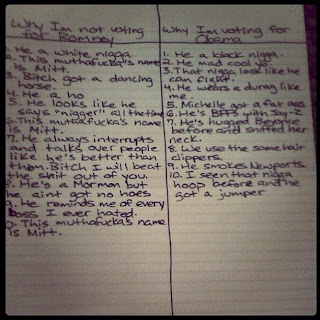 Why I'm not voting
for Romney
1. He a white nigga
2. This muthafucka's name
is Mitt.
3. Bitch got a dancing
horse.
4. He a ho
5. He looks like he
says "nigger" all the time
6. This mutafucka's name
is Mitt.
7. He always interrupts
and talks over people
like he's better than
them. Bitch I will beat
the shit out of you.
8. He's a Mormon but
he aint got no hoes
9. He reminds me of every
boss I ever hated.
10. This muthafucka's name
is Mitt.
Why I'm voting for
Obama
1. He a black nigga.
2. He mad cool
3. That nigga look like he
can fight.
4. He wears a durag like
me.
5. Michelle got a fat ass
6. He's BFF's with Jay-Z
7. He's hugged Beyonce
before and sniffed her
neck.
8. We use the same hair
clippers.
9. He smokes Newports
10. I seen that nigga
hoop before and he
got a jumper